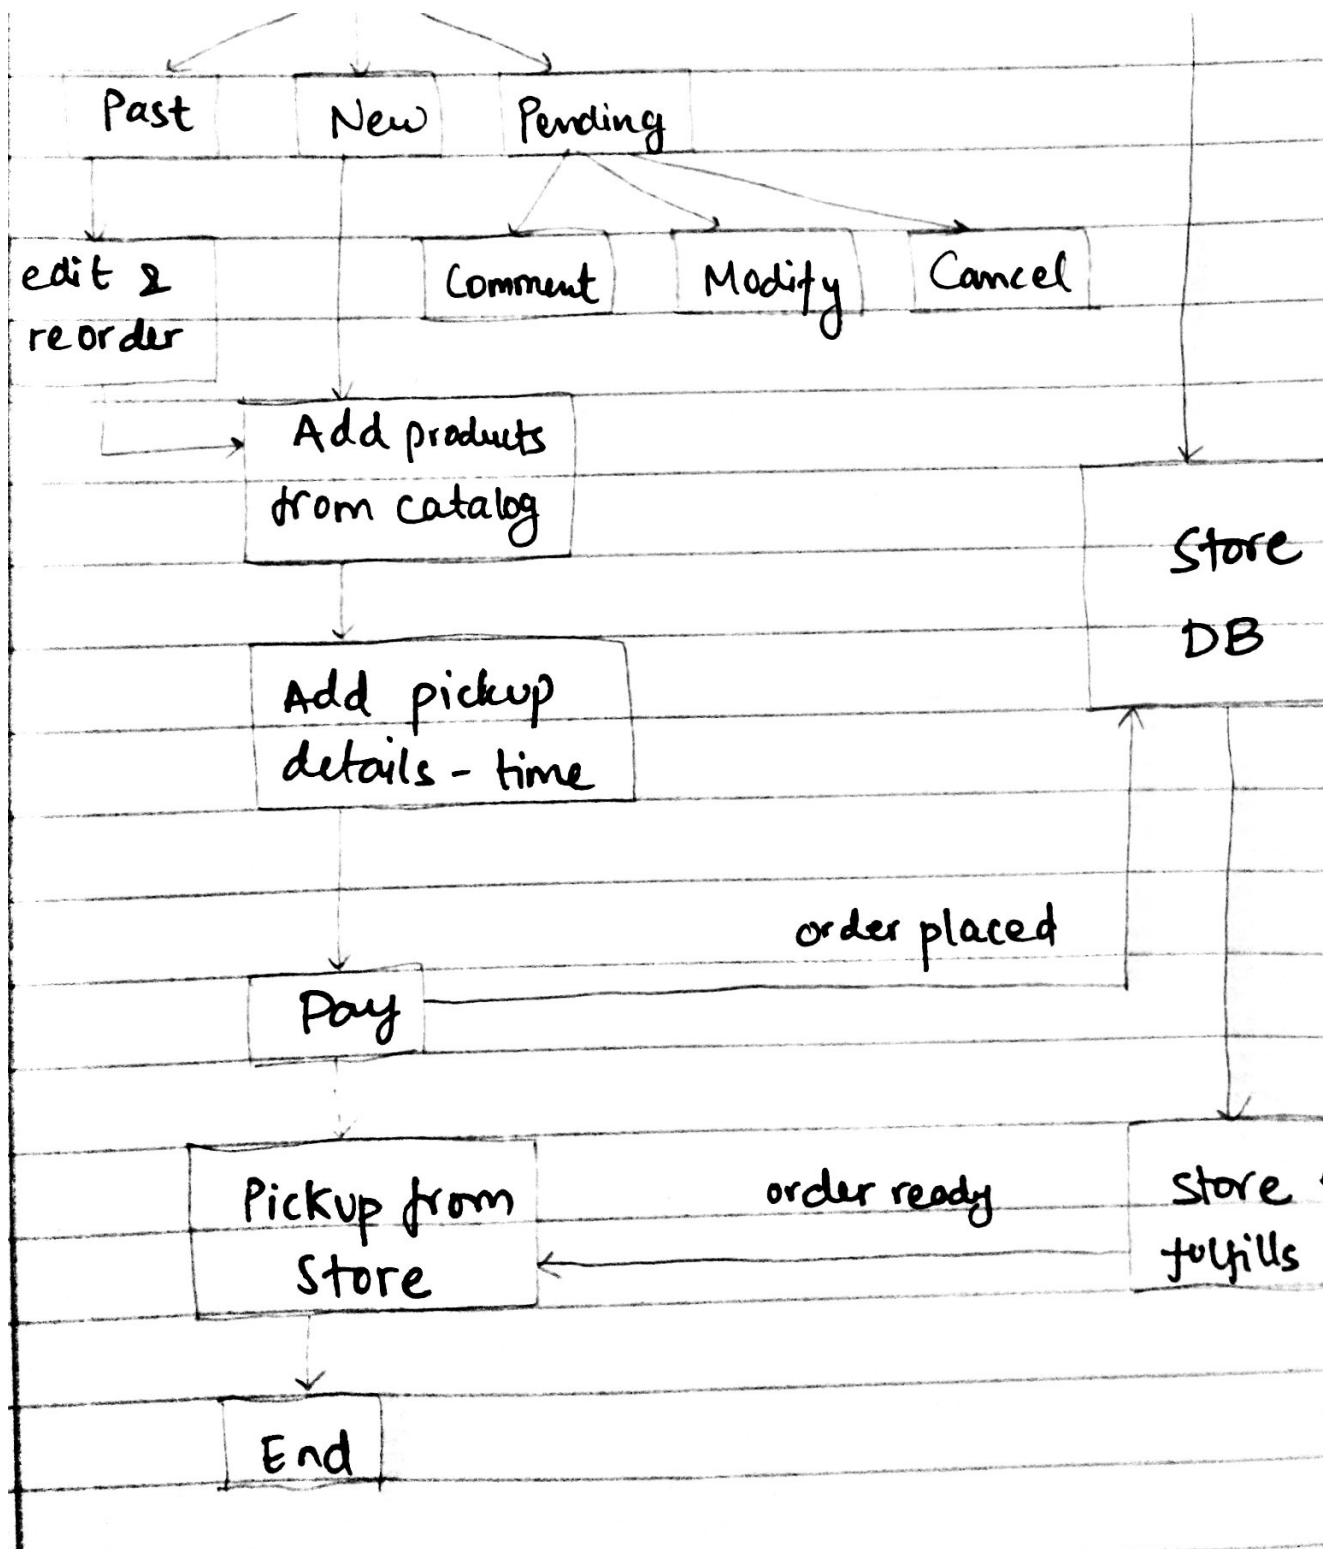 Past
New
Pending
edit &
reorder
Comment
Modify
Cancel
Add products
from catalog
Store
DB
Add pickup
details - time
order placed
Pay
Pickup from
Store
order ready
store
fulfills
End